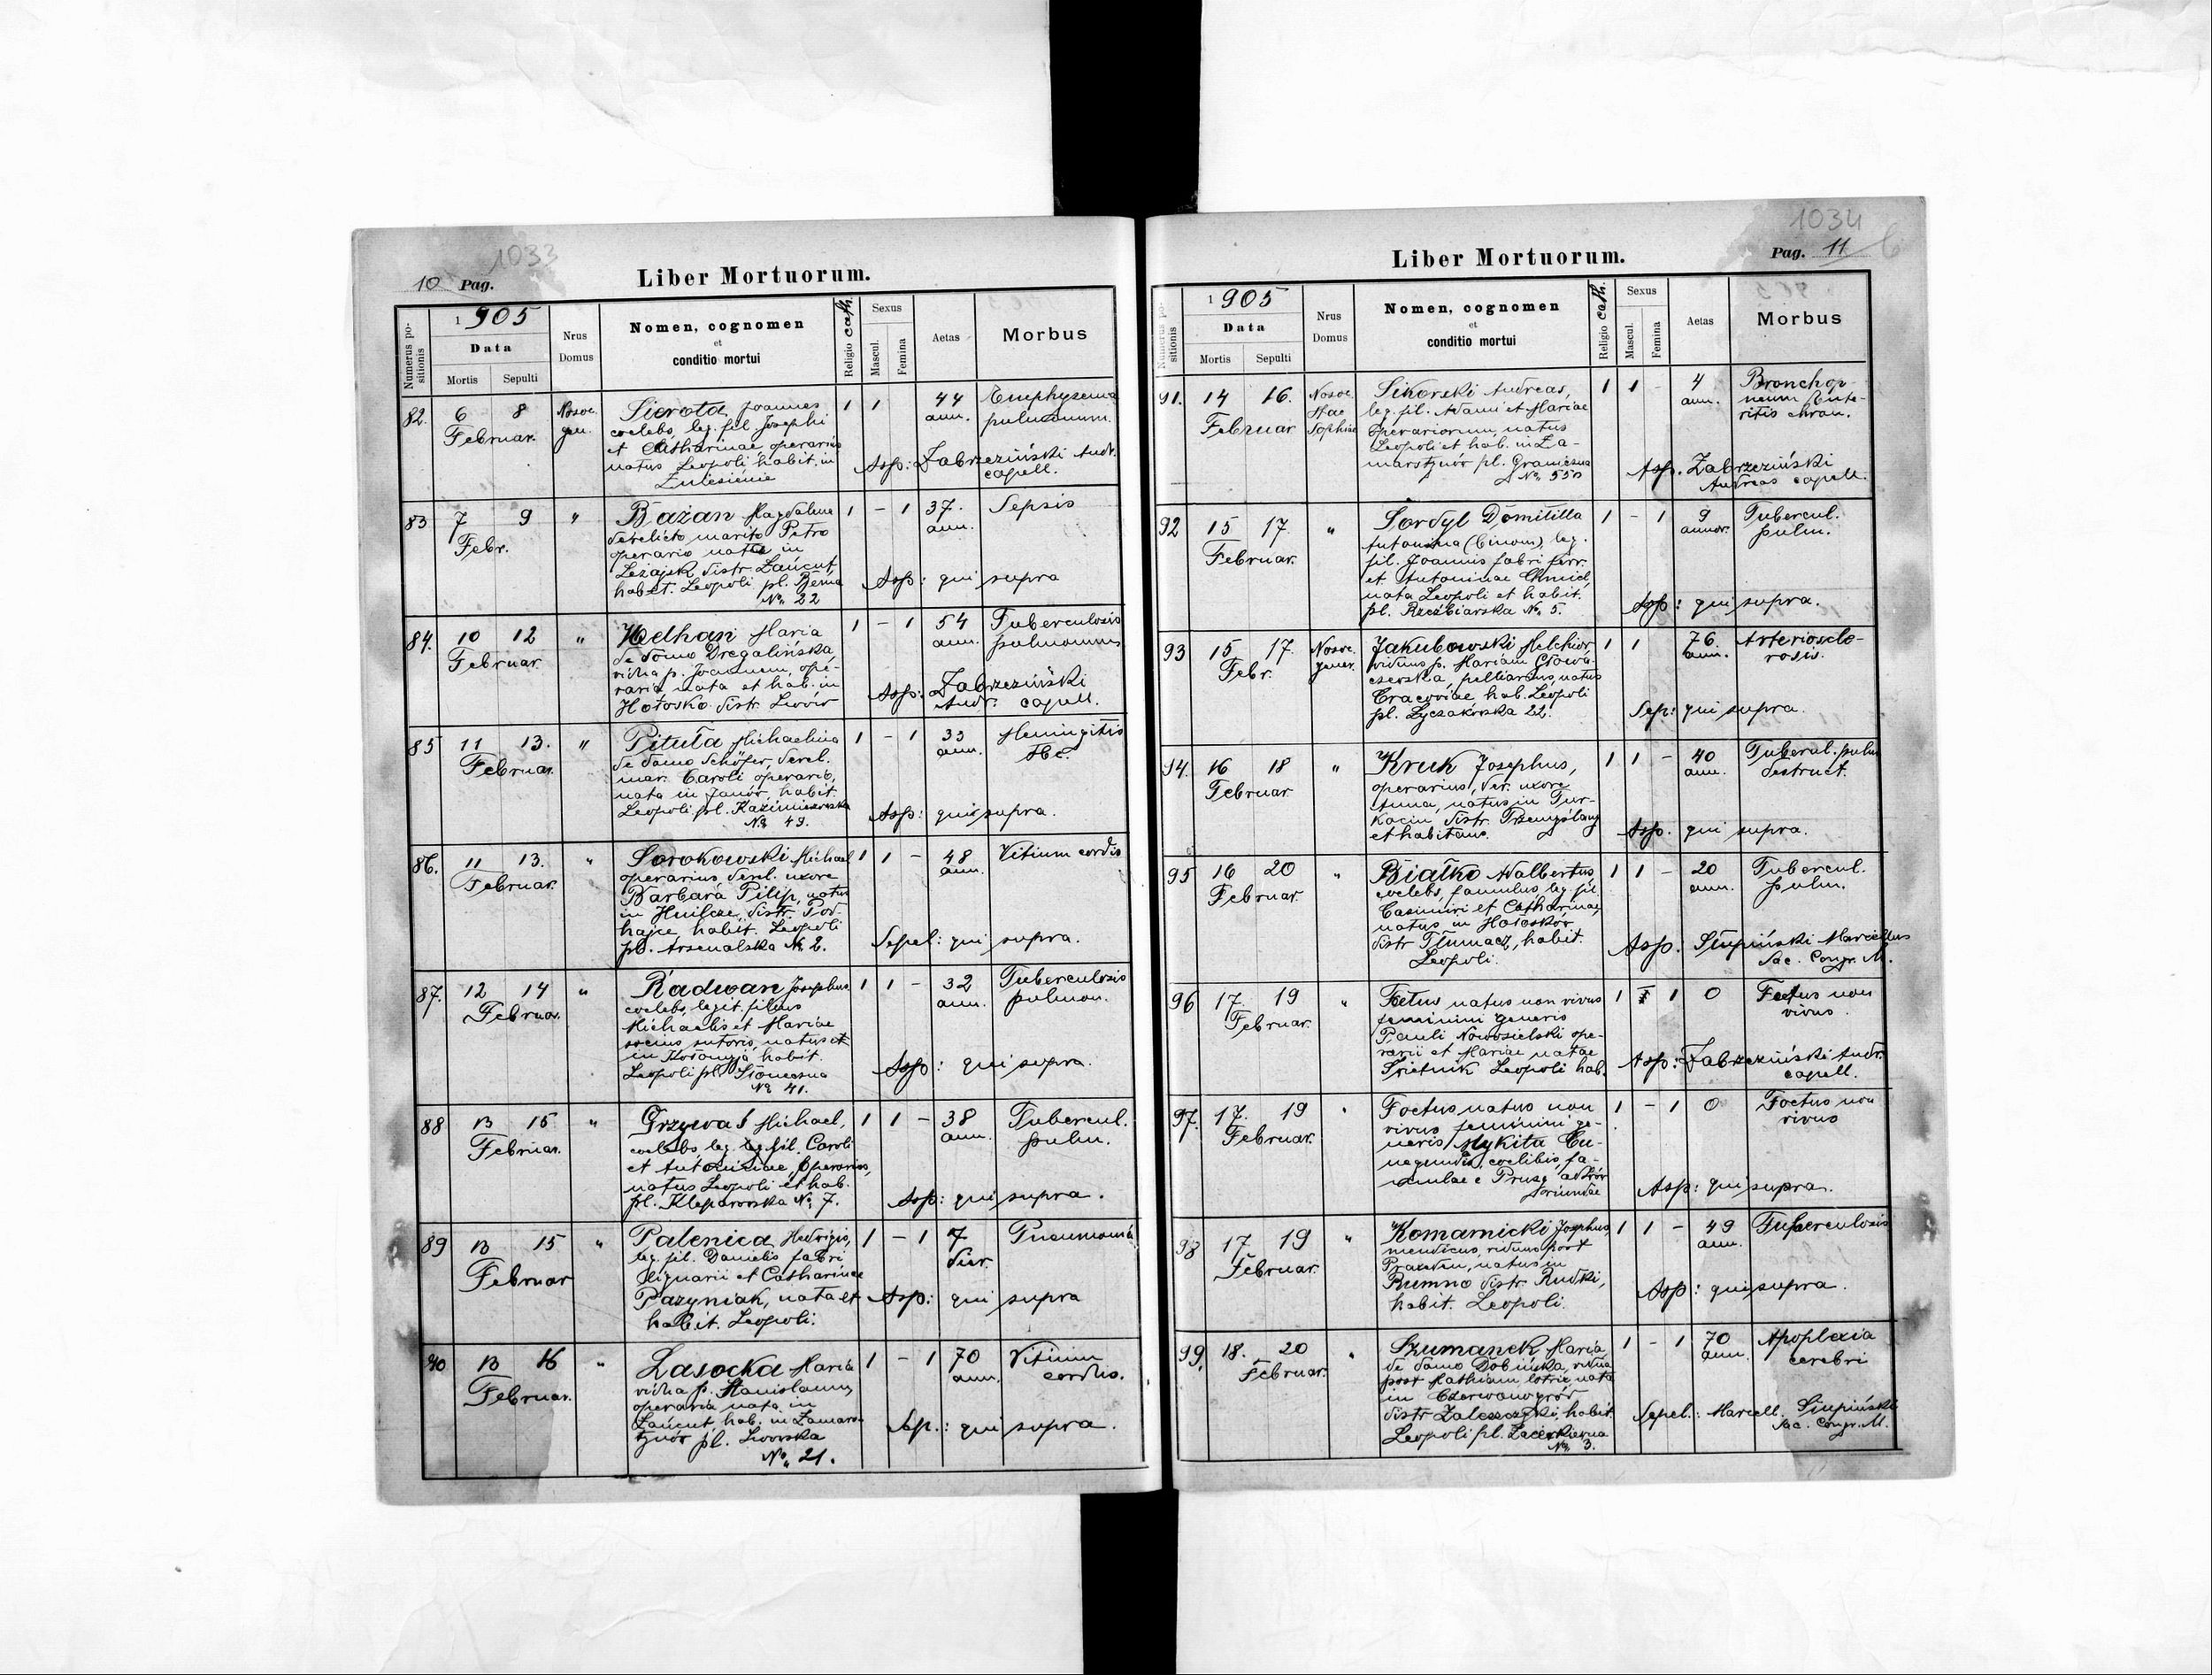 1033
10 Pag.
Liber Mortuorum.
Numerus positionis
1 905
Data
Mortis
Sepulti
Nrus Domus
Nomen, cognomen
et
conditio mortui
Religio cath.
Sexus
Mascul.
Femina
Aetas
Morbus
82. 6 8 Nosoc. Sierota Joannes 1 1 44 Emphysema
Februar. gen. coelebs, leg. fil Josephi ann. pulmonum.
et Catharinae operarius
natus Leopoli, habit. in Asp: Zabrzeziński Andr.
Zniesienie capell.
83 7 9 " Bażan Magdalena 1 - 1 37. Sepsis
Febr. derelicto marito Petro ann.
operario nata in
Leżajsk distr. Łańcut
habit. Leopoli pl. Bema Asp: qui supra
No. 22
84. 10 12 " Helhan Maria 1 - 1 54 Tuberculosis
Februar. de domo Dregalińska, ann. pulmonum
vidua p. Joannem, ope-
raria, nata et hab. in Asp: Zabrzeziński
Hołosko distr. Lwów Andr. capell.
85 11 13. " Pituła Michaelina 1 - 1 33 Meningitis
Februar. de domo Schöfer, derel. ann. tbc.
mar. Caroli operario,
nata in Janów, habit.
Leopoli pl. Kazimierowska Asp: qui supra.
No 49.
86. 11 13. " Sorokowski Michael 1 1 - 48 Vitium cordis
Februar. operarius derel. uxore ann.
Barbara Pilip, natus
in Hnilcze, distr. Pod-
hajce, habit. Leopoli Sepel: qui supra.
pl. Arsenalska No 2.
87. 12 14 " Radwan Josephus 1 1 - 32 Tuberculosis
Februar. coelebs, legit. filius ann. pulmon.
Michaelis et Mariae
socius sutoris, natus
in habit. Asp: qui supra.
Leopoli pl. Słoneczna
No 41.
88 13 15 " Grzywas Michael, 1 1 - 38 Tubercul.
Februar. coelebs, leg. fil. Caroli ann. pulm.
et Antoninae, operarius,
natus Leopoli et hab.
pl. Kleparowska No 7. Asp: qui supra.
89 13 15 " Palenica Hedvigis, 1 - 1 7 Pneumonia
Februar leg. fil. Danielis fabri dier.
lignarii et Catharinae
Pazyniak, nata et Asp: qui supra
habit. Leopoli.
90 13 16 " Lasocka Maria 1 - 1 70 Vitium
Februar. vidua p. Stanislaum, ann. cordis.
operaria nata in
Łańcut hab. in Zamars- Sep.: qui supra.
tynów pl. Lwowska
No. 21.
1034
Liber Mortuorum.
Pag. 11
Numerus positionis
1 905
Data
Mortis
Sepulti
Nrus Domus
Nomen, cognomen
et
conditio mortui
Religio cath.
Sexus
Mascul.
Femina
Aetas
Morbus
91. 14 16. Nosoc. Sikorski Andreas, 1 1 - 4 Bronchop-
Februar Stae leg. fil. Adami et Mariae ann. neum. Ente-
Sophiae operariorum, natus ritis chron.
Leopoli et hab. in Za-
marstynów pl. Graniczna Asp. Zabrzeziński
No. 550 Andreas capell.
92 15 17. " Sordyl Domitilla 1 - 1 9 Tubercul.
Februar. Antonina (binom) leg. annor. pulm.
fil. Joannis fabri ferr.
et Antoninae Chmiel,
nata Leopoli et habit.
pl. Rzeźbiarska No 5. Asp: qui supra.
93 15 17. Nosoc. Jakubowski Melchior, 1 1 76. Arterioscle-
Febr. gener. viduus p. Mariam Głowa- ann. rosis.
czewska, pelliarius, natus
Cracoviae hab. Leopoli
pl. Łyczakowska 22. Sep: qui supra.
94. 16 18 " Kruk Josephus, 1 1 - 40 Tubercul. pulm
Februar operarius, der. uxore ann. destruct.
Anna, natus in Tur-
kocin distr. Przemyślany
et habitans. Asp. qui supra.
95 16 20 " Białko Adalbertus, 1 1 - 20 Tubercul.
Februar. coelebs, famulus, leg. fil. ann. pulm.
Casimiri et Catharinae,
natus in
distr Tłumacz, habit. Asp. Słupiński Marcellus
Leopoli. Sac. Congr. M.
96 17. 19 " Foetus natus non vivus 1 1 0 Foetus non
Februar. feminini generis vivus.
Pauli Nowosielski ope-
rarii et Mariae natae Asp: Zabrzeziński Andr.
Leopoli hab. capell.
97. 17. 19 " Foetus natus non 1 - 1 0 Foetus non
Februar. vivus feminini ge- vivus
neris Mykita Cu-
negundis, coelibis, fa-
mulae e Prusy ad Lwów Asp: qui supra.
oriundae
98 17 19 " Komarnicki Josephus, 1 1 - 49 Tuberculosis
Februar. mendicus, viduus post ann.
natus in
Rumno distr. Rudki, Asp: qui supra.
habit. Leopoli.
99. 18. 20 " Szumanek Maria 1 - 1 70 Apoplexia
Februar. de domo Dobińska, vidua ann. cerebri
post Mathiam lotrix, nata
in Czerwonogród
distr Zaleszczyki, habit. Sepel.: Marcell. Słupiński
Leopoli pl. Sac. Congr. M.
No 3.